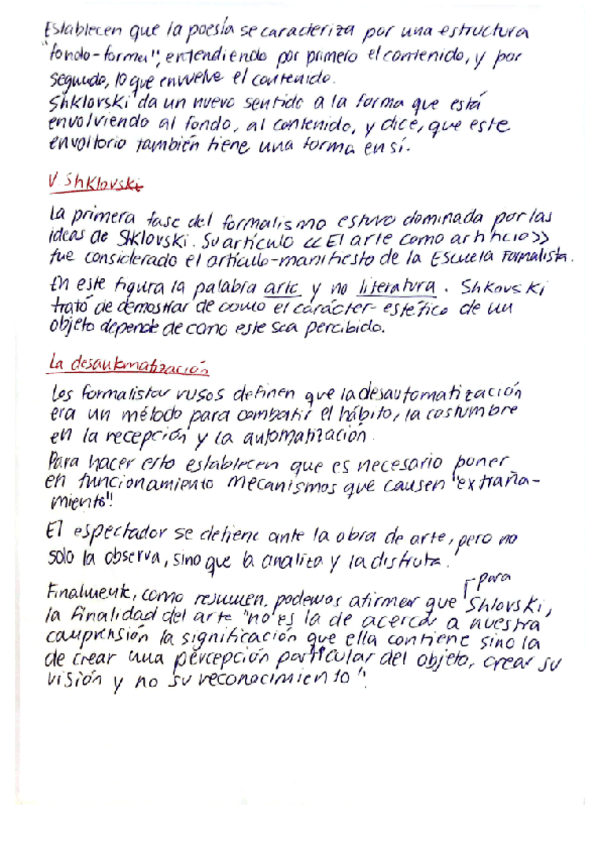 Establecen que la poesía se caracteriza por una estructura
"fondo-forma", entendiendo por primero el contenido, y por
segundo, lo que envuelve el contenido.
Shklovski da un nuevo sentido a la forma que está
envolviendo al fondo, al contenido, y dice, que este
envoltorio también tiene una forma en sí.
V Shklovski
La primera fase del formalismo estuvo dominada por las
ideas de Shklovski. Su artículo <<El arte como artificio>>
fue considerado el artículo-manifiesto de la Escuela Formalista.
En este figura la palabra arte y no literatura. Shkovski
trató de demostrar de como el carácter estético de un
objeto depende de como este sea percibido.
La desautomatización
Los formalistas rusos definen que la desautomatización
era un método para combatir el hábito, la costumbre
en la recepción y la automatización.
Para hacer esto establecen que es necesario poner
en funcionamiento mecanismos que causen "extraña-
miento".
El espectador se detiene ante la obra de arte, pero no
solo la observa, sino que la analiza y la disfruta.
para
Finalmente, como resumen, podemos afirmar que Shlovski,
la finalidad del arte "no es la de acercar a nuestra
comprensión la significación que ella contiene sino la
de crear una percepción particular del objeto, crear su
visión y no su reconocimiento".